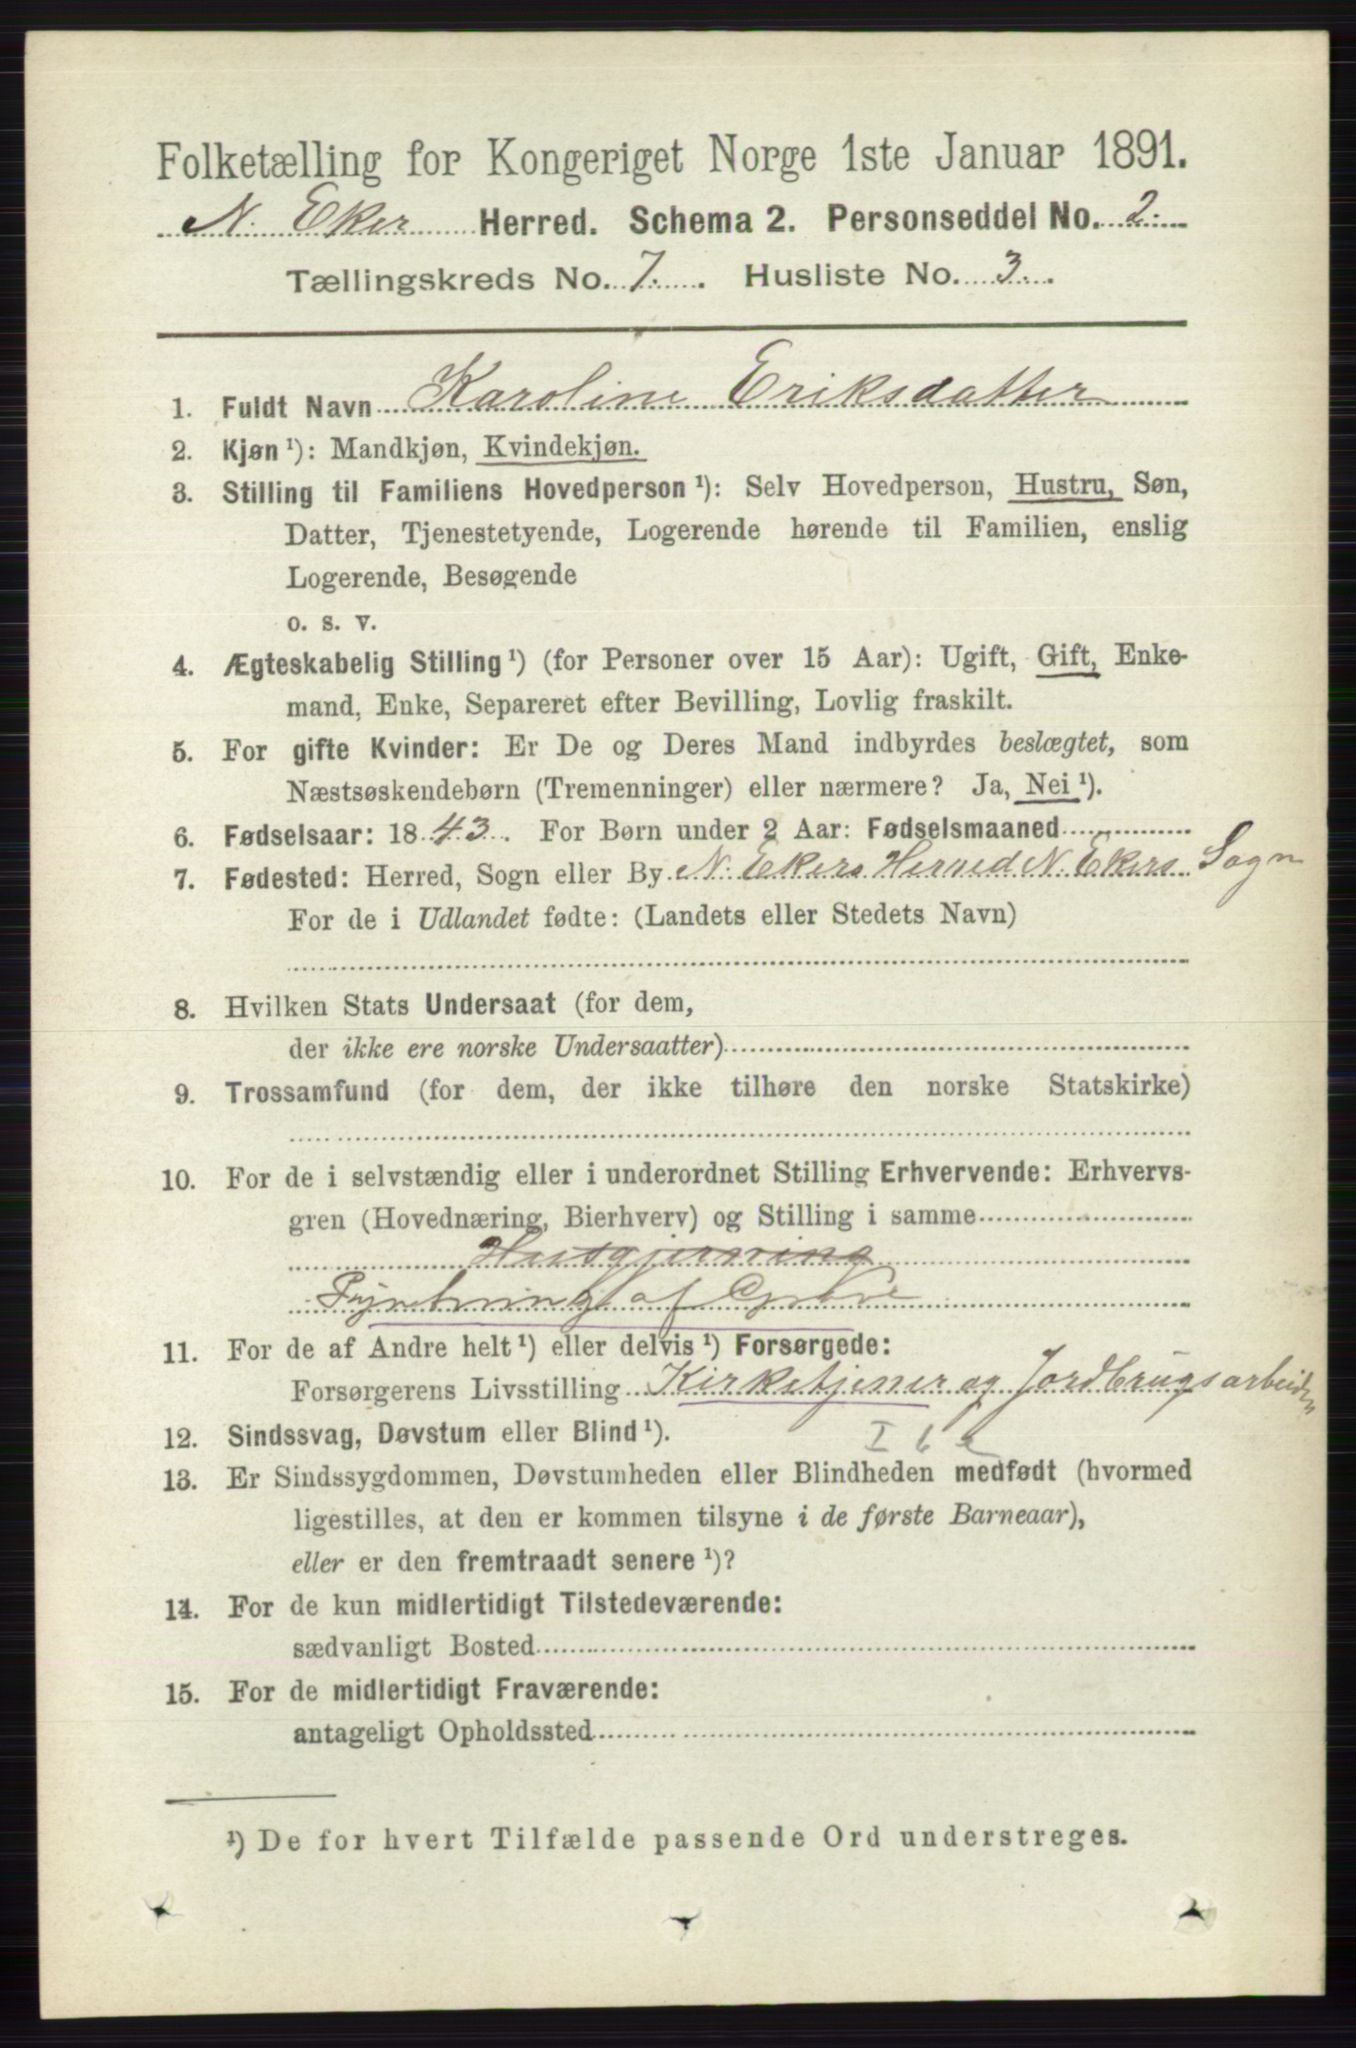 Folketælling for Kongeriget Norge 1ste Januar 1891.
N. Eker Herred. Schema 2. Personseddel No. 2.
Tællingskreds No. 7. Husliste No. 3.
1. Fuldt Navn Karoline Eriksdatter
2. Kjøn ¹): Mandkjøn, Kvindekjøn.
3. Stilling til Familiens Hovedperson ¹): Selv Hovedperson, Hustru, Søn,
Datter, Tjenestetyende, Logerende hørende til Familien, enslig
Logerende, Besøgende
o. s. v.
4. Ægteskabelig Stilling ¹) (for Personer over 15 Aar): Ugift, Gift, Enke-
mand, Enke, Separeret efter Bevilling, Lovlig fraskilt.
5. For gifte Kvinder: Er De og Deres Mand indbyrdes beslægtet, som
Næstsøskendebørn (Tremenninger) eller nærmere? Ja, Nei ¹).
6. Fødselsaar: 1843. For Børn under 2 Aar: Fødselsmaaned
7. Fødested: Herred, Sogn eller By N. Ekers Herred N. Ekers Sogn
For de i Udlandet fødte: (Landets eller Stedets Navn)
8. Hvilken Stats Undersaat (for dem,
der ikke ere norske Undersaatter)
9. Trossamfund (for dem, der ikke tilhøre den norske Statskirke)
10. For de i selvstændig eller i underordnet Stilling Erhvervende: Erhvervs-
gren (Hovednæring, Bierhverv) og Stilling i samme
Husgjerning
af
11. For de af Andre helt ¹) eller delvis ¹) Forsørgede:
Forsørgerens Livsstilling Kirketjener og Jordbrugsarbeider
12. Sindssvag, Døvstum eller Blind ¹).
13. Er Sindssygdommen, Døvstumheden eller Blindheden medfødt (hvormed
ligestilles, at den er kommen tilsyne i de første Barneaar),
eller er den fremtraadt senere ¹)?
14. For de kun midlertidigt Tilstedeværende:
sædvanligt Bosted
15. For de midlertidigt Fraværende:
antageligt Opholdssted
¹) De for hvert Tilfælde passende Ord understreges.